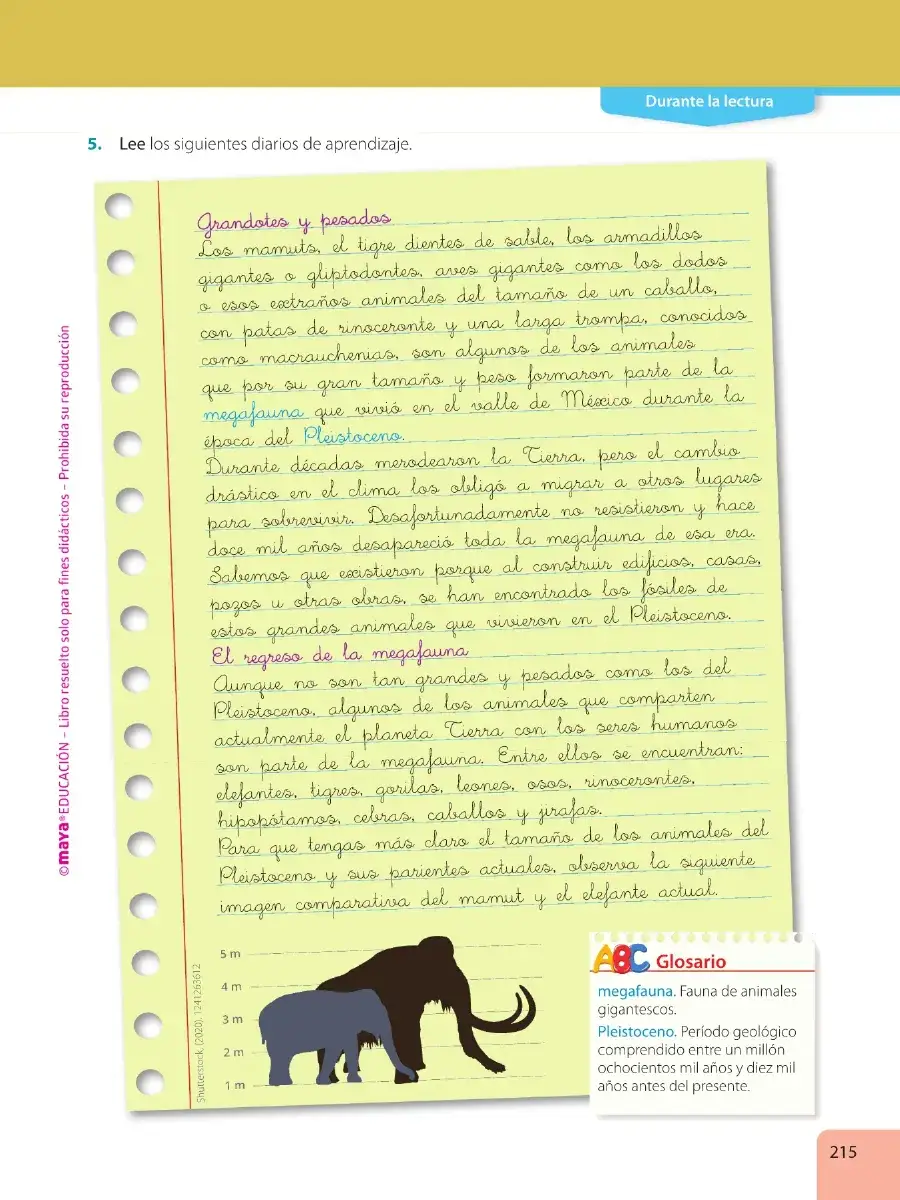 Durante la lectura
5. Lee los siguientes diarios de aprendizaje.
Grandotes y pesados
Los mamuts, el tigre dientes de sable, los armadillos
gigantes o gliptodontes, aves gigantes como los dodos
o esos extraños animales del tamaño de un caballo,
con patas de rinoceronte y una larga trompa, conocidos
como macrauchenias, son algunos de los animales
que por su gran tamaño y peso formaron parte de la
megafauna que vivió en el valle de México durante la
época del Pleistoceno.
Durante décadas merodearon la Tierra, pero el cambio
drástico en el clima los obligó a migrar a otros lugares
para sobrevivir. Desafortunadamente no resistieron y hace
doce mil años desapareció toda la megafauna de esa era.
Sabemos que existieron porque al construir edificios, casas,
pozos u otras obras, se han encontrado los fósiles de
estos grandes animales que vivieron en el Pleistoceno.
El regreso de la megafauna
Aunque no son tan grandes y pesados como los del
Pleistoceno, algunos de los animales que comparten
actualmente el planeta Tierra con los seres humanos
son parte de la megafauna. Entre ellos se encuentran:
elefantes, tigres, gorilas, leones, osos, rinocerontes,
hipopótamos, cebras, caballos y jirafas.
Para que tengas más claro el tamaño de los animales del
Pleistoceno y sus parientes actuales, observa la siguiente
imagen comparativa del mamut y el elefante actual.
5 m
4 m
3 m
2 m
1 m
Shutterstock, (2020), 1241263612
ABC Glosario
megafauna. Fauna de animales
gigantescos.
Pleistoceno. Período geológico
comprendido entre un millón
ochocientos mil años y diez mil
años antes del presente.
© maya® EDUCACIÓN – Libro resuelto solo para fines didácticos – Prohibida su reproducción
215